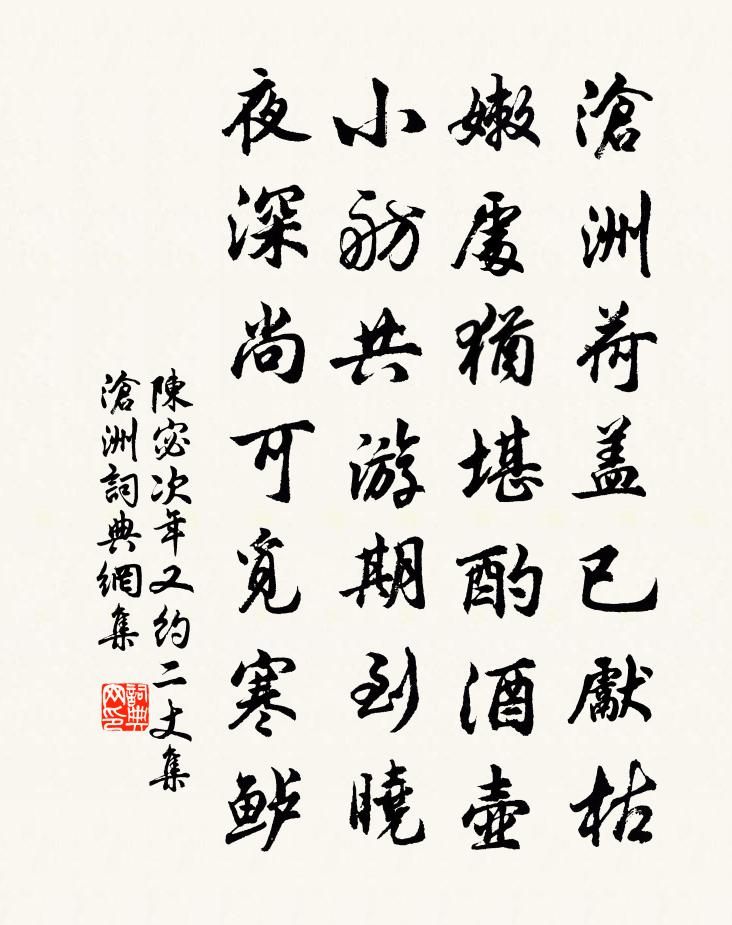 滄洲荷盖已獻枯
嫩處猶堪酌酒壺
小舫共游期到曉
夜深尚可覓寒鲈
陳宓次年又約二丈集
滄洲詞典網集
詞典
网印